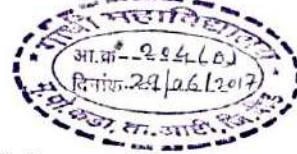 गांधी महाविद्यालय
आ.क्रं
दिनांक 29/06/2017
मु.पो.कडा, ता. आष्टी, जि. बीड